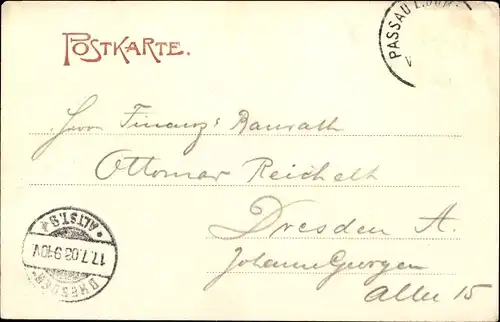 POSTKARTE.
PASSAU
Herrn Finanz: Baurath
Ottomar Reichelt
Dresden A.
Johann Georgen
Allee 15
DRESDEN
17.7.03 9-10V
* ALTST. 9 *